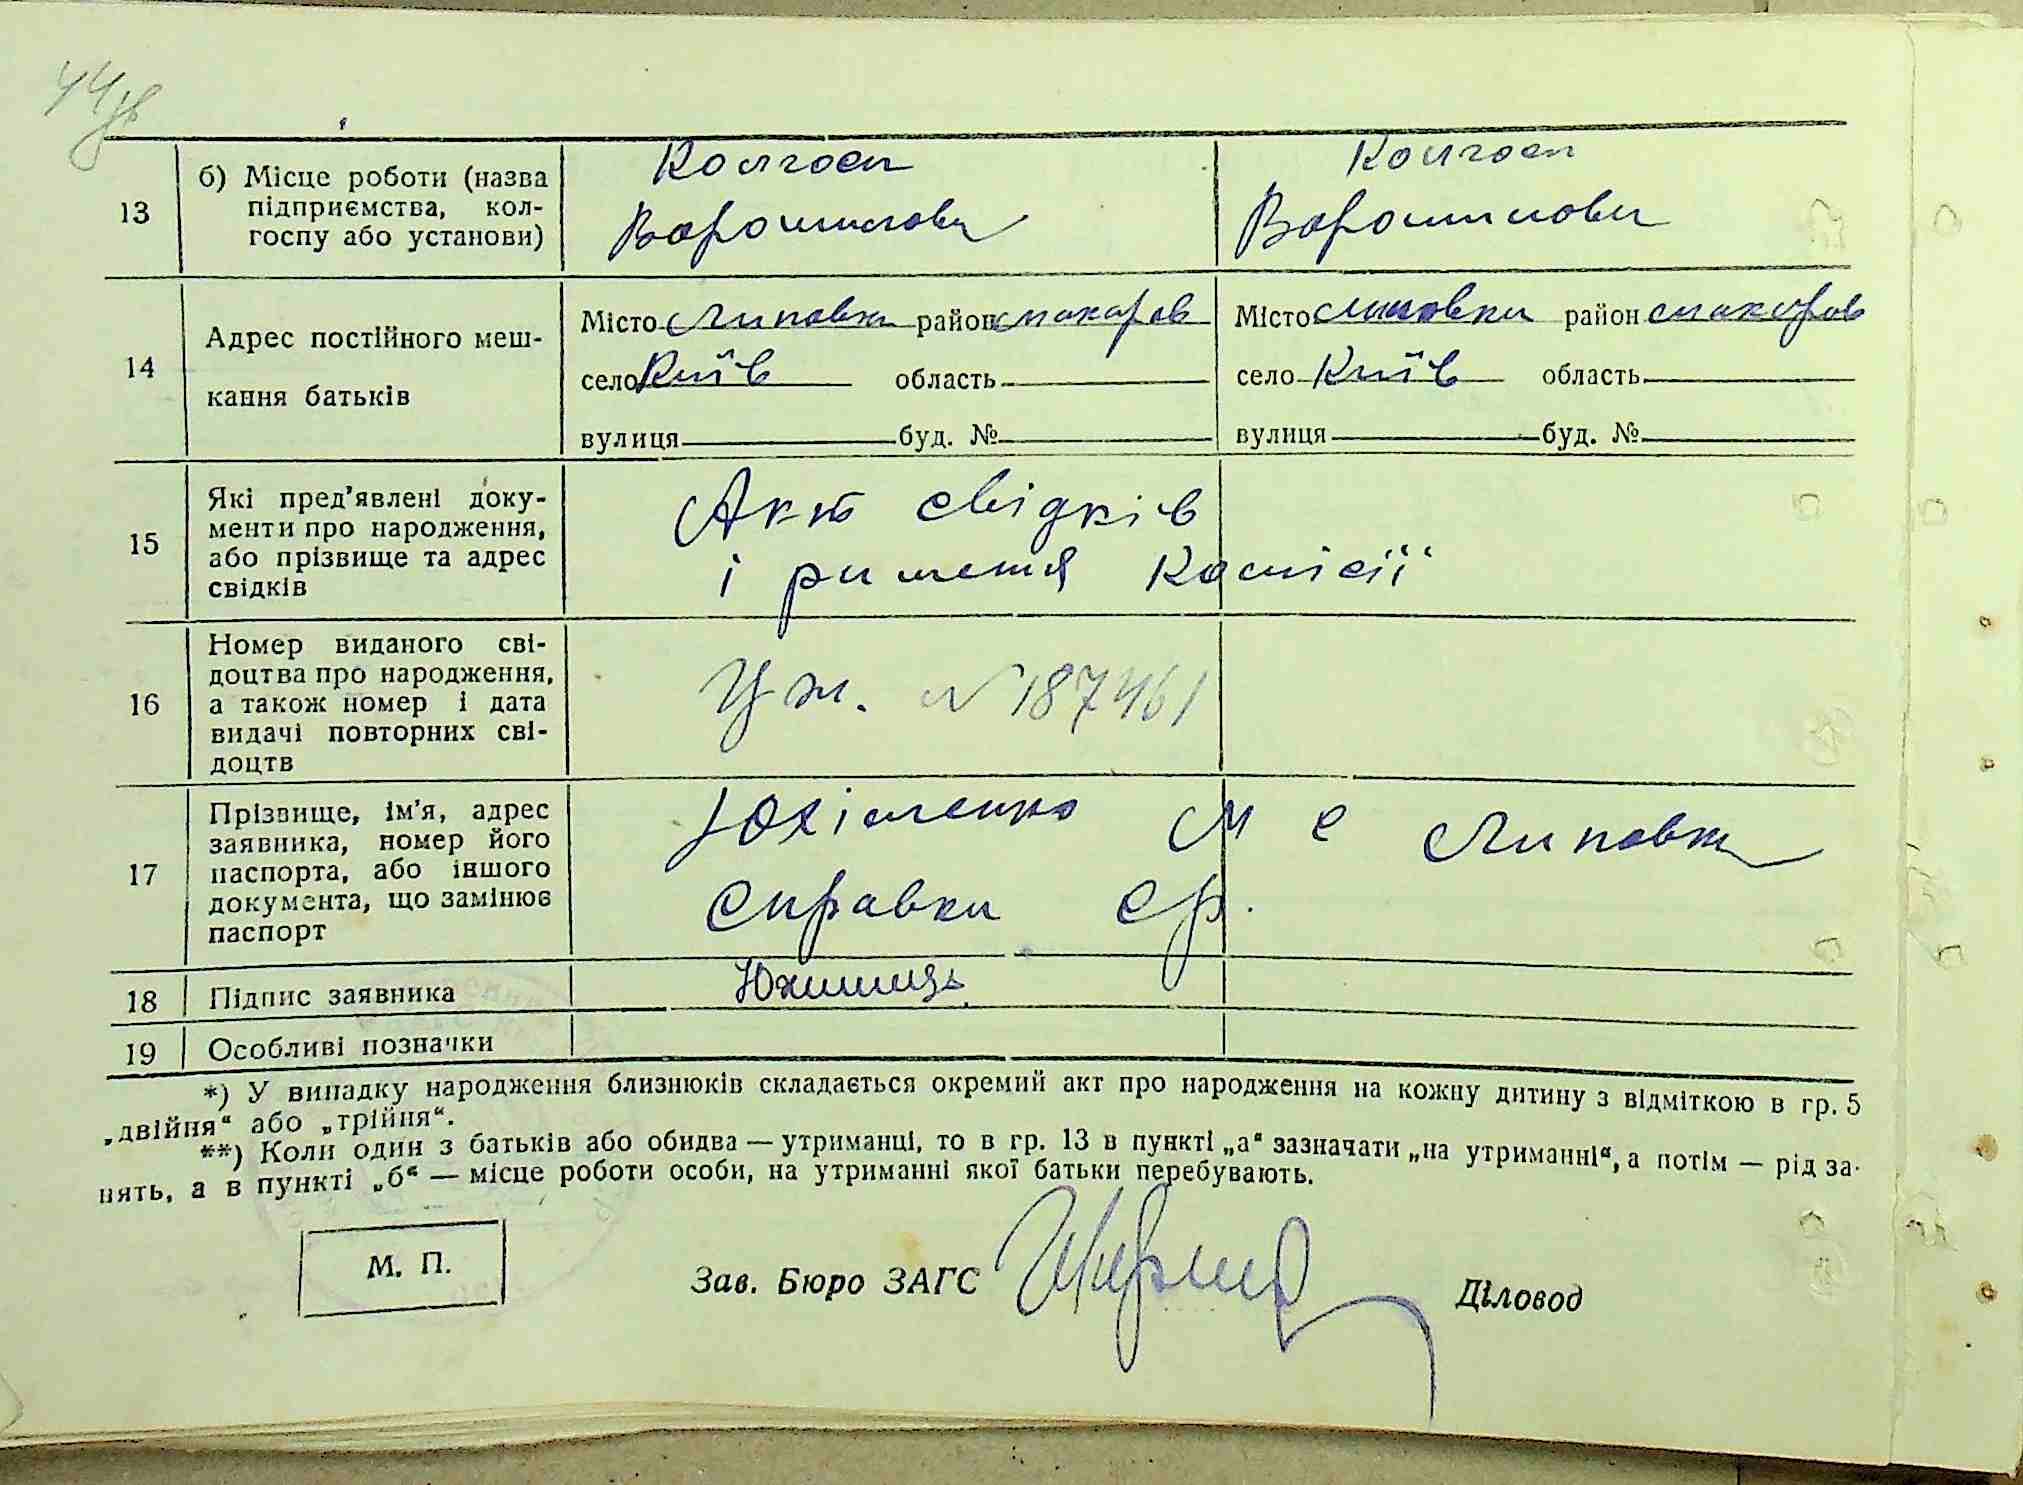 44зв
13 б) Місце роботи (назва Колгосп Колгосп
підприємства, кол- Ворошилова Ворошилова
госпу або установи)
14 Адрес постійного меш- Місто Липовка район Макаров Місто Липовка район Макаров
кання батьків село Київ область село Київ область
вулиця буд. № вулиця буд. №
15 Які пред'явлені доку- Акт свідків
менти про народження, і ришення Комісії
або прізвище та адрес
свідків
16 Номер виданого сві- № 187461
доцтва про народження,
а також номер і дата
видачі повторних сві-
доцтв
17 Прізвище, ім'я, адрес Юхименко М с Липовка
заявника, номер його справки ср.
паспорта, або іншого
документа, що замінює
паспорт
18 Підпис заявника
19 Особливі позначки
*) У випадку народження близнюків складається окремий акт про народження на кожну дитину з відміткою в гр. 5
„двійня“ або „трійня“.
**) Коли один з батьків або обидва — утриманці, то в гр. 13 в пункті „а“ зазначати „на утриманні“, а потім — рід за-
нять, а в пункті „б“ — місце роботи особи, на утриманні якої батьки перебувають.
М. П. Зав. Бюро ЗАГС Діловод